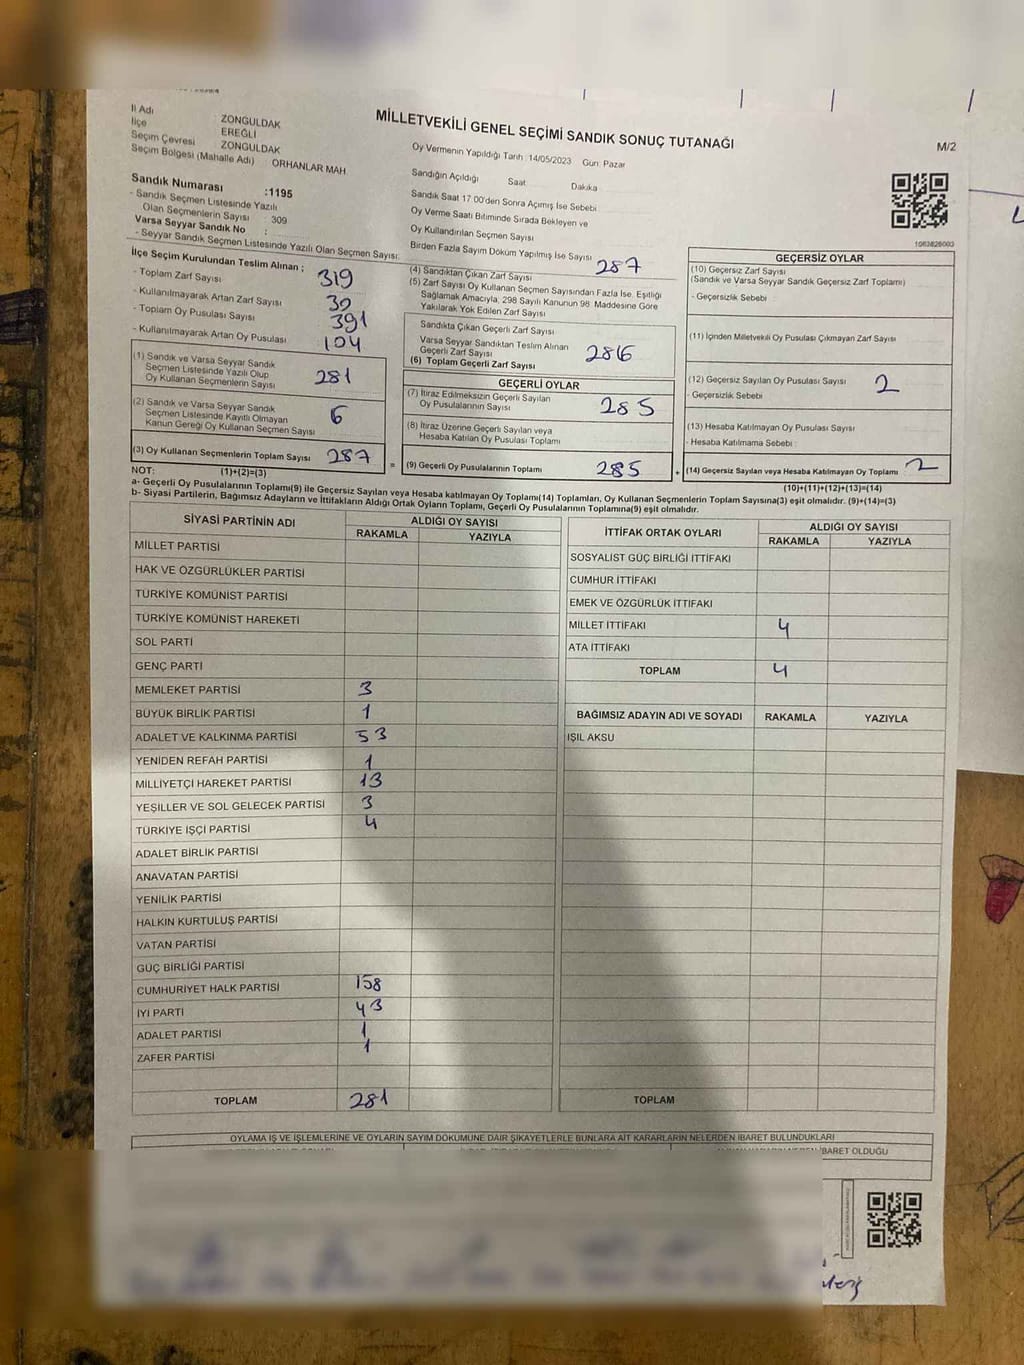 İl Adı ZONGULDAK
İlçe EREĞLİ
Seçim Çevresi ZONGULDAK
Seçim Bölgesi (Mahalle Adı) ORHANLAR MAH.
MİLLETVEKİLİ GENEL SEÇİMİ SANDIK SONUÇ TUTANAĞI
M/2
Oy Vermenin Yapıldığı Tarih :14/05/2023 Gün: Pazar
Sandığın Açıldığı Saat Dakika
Sandık Saat 17.00'den Sonra Açımış İse Sebebi
Oy Verme Saati Bitiminde Sırada Bekleyen ve
Oy Kullandırılan Seçmen Sayısı
Birden Fazla Sayım Döküm Yapılmış İse Sayısı
Sandık Numarası :1195
- Sandık Seçmen Listesinde Yazılı
Olan Seçmenlerin Sayısı : 309
Varsa Seyyar Sandık No :
- Seyyar Sandık Seçmen Listesinde Yazılı Olan Seçmen Sayısı:
1063626003
İlçe Seçim Kurulundan Teslim Alınan ;
- Toplam Zarf Sayısı 319
- Kullanılmayarak Artan Zarf Sayısı
- Toplam Oy Pusulası Sayısı 391
- Kullanılmayarak Artan Oy Pusulası 104
(1) Sandık ve Varsa Seyyar Sandık
Seçmen Listesinde Yazılı Olup
Oy Kullanan Seçmenlerin Sayısı 281
(2) Sandık ve Varsa Seyyar Sandık
Seçmen Listesinde Kayıtlı Olmayan
Kanun Gereği Oy Kullanan Seçmen Sayısı 6
(3) Oy Kullanan Seçmenlerin Toplam Sayısı 287
(1)+(2)=(3)
(4) Sandıktan Çıkan Zarf Sayısı 287
(5) Zarf Sayısı Oy Kullanan Seçmen Sayısından Fazla İse, Eşitliği
Sağlamak Amacıyla, 298 Sayılı Kanunun 98. Maddesine Göre
Yakılarak Yok Edilen Zarf Sayısı
Sandıkta Çıkan Geçerli Zarf Sayısı
Varsa Seyyar Sandıktan Teslim Alınan
Geçerli Zarf Sayısı
(6) Toplam Geçerli Zarf Sayısı 286
GEÇERLİ OYLAR
(7) İtiraz Edilmeksizin Geçerli Sayılan
Oy Pusulalarının Sayısı 285
(8) İtiraz Üzerine Geçerli Sayılan veya
Hesaba Katılan Oy Pusulası Toplamı
= (9) Geçerli Oy Pusulalarının Toplamı 285 +
GEÇERSİZ OYLAR
(10) Geçersiz Zarf Sayısı
(Sandık ve Varsa Seyyar Sandık Geçersiz Zarf Toplamı)
- Geçersizlik Sebebi
(11) İçinden Milletvekili Oy Pusulası Çıkmayan Zarf Sayısı
(12) Geçersiz Sayılan Oy Pusulası Sayısı 2
- Geçersizlik Sebebi
(13) Hesaba Katılmayan Oy Pusulası Sayısı
- Hesaba Katılmama Sebebi :
(14) Geçersiz Sayılan veya Hesaba Katılmayan Oy Toplamı 2
(10)+(11)+(12)+(13)=(14)
NOT:
a- Geçerli Oy Pusulalarının Toplamı(9) ile Geçersiz Sayılan veya Hesaba katılmayan Oy Toplamı(14) Toplamları, Oy Kullanan Seçmenlerin Toplam Sayısına(3) eşit olmalıdır. (9)+(14)=(3)
b- Siyasi Partilerin, Bağımsız Adayların ve İttifakların Aldığı Ortak Oyların Toplamı, Geçerli Oy Pusulalarının Toplamına(9) eşit olmalıdır.
SİYASİ PARTİNİN ADI ALDIĞI OY SAYISI
RAKAMLA YAZIYLA
MİLLET PARTİSİ
HAK VE ÖZGÜRLÜKLER PARTİSİ
TÜRKİYE KOMÜNİST PARTİSİ
TÜRKİYE KOMÜNİST HAREKETİ
SOL PARTİ
GENÇ PARTİ
MEMLEKET PARTİSİ 3
BÜYÜK BİRLİK PARTİSİ 1
ADALET VE KALKINMA PARTİSİ 53
YENİDEN REFAH PARTİSİ 1
MİLLİYETÇİ HAREKET PARTİSİ 13
YEŞİLLER VE SOL GELECEK PARTİSİ 3
TÜRKİYE İŞÇİ PARTİSİ 4
ADALET BİRLİK PARTİSİ
ANAVATAN PARTİSİ
YENİLİK PARTİSİ
HALKIN KURTULUŞ PARTİSİ
VATAN PARTİSİ
GÜÇ BİRLİĞİ PARTİSİ
CUMHURİYET HALK PARTİSİ 158
İYİ PARTİ 43
ADALET PARTİSİ 1
ZAFER PARTİSİ 1
TOPLAM 281
İTTİFAK ORTAK OYLARI ALDIĞI OY SAYISI
RAKAMLA YAZIYLA
SOSYALİST GÜÇ BİRLİĞİ İTTİFAKI
CUMHUR İTTİFAKI
EMEK VE ÖZGÜRLÜK İTTİFAKI
MİLLET İTTİFAKI 4
ATA İTTİFAKI
TOPLAM 4
BAĞIMSIZ ADAYIN ADI VE SOYADI RAKAMLA YAZIYLA
IŞIL AKSU
TOPLAM
OYLAMA İŞ VE İŞLEMLERİNE VE OYLARIN SAYIM DÖKÜMÜNE DAİR ŞİKAYETLERLE BUNLARA AİT KARARLARIN NELERDEN İBARET BULUNDUKLARI
İBARET OLDUĞU